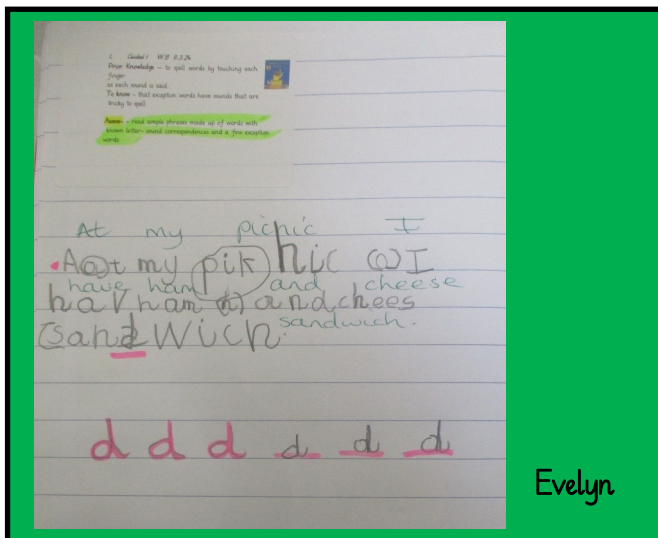 L. Guided 1 WB 11.3.24
Prior Knowledge – to spell words by touching each
finger
as each sound is said.
To know – that exception words have sounds that are
tricky to spell
– read simple phrases made up of words with
known letter-sound correspondences and a few exception
words
At my picnic I
Aat my piknic aI
have ham and cheese
hav ham a) and chees
sandwich.
Sandwich.
d d d d d d
Evelyn